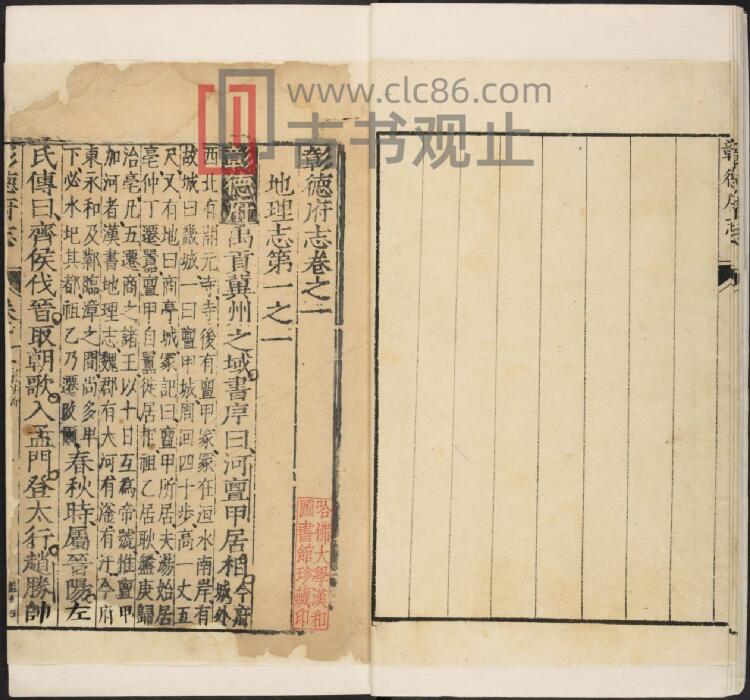 www.clc86.com
古书观止
彰德府志
彰德府志卷之一
地理志第一之一
彰德府禹貢冀州之域書序曰河亶甲居相今府城外
西北有開元寺寺後有亶甲冢冢在洹水南岸有
故城曰畿城一曰亶甲城周回四十步高一丈五
尺又有地曰商亭城冢記曰亶甲所居夫湯始居
亳仲丁遷囂亶甲自囂徙居相祖乙居耿盤庚歸
治亳凡五遷商之諸王以十日互為帝號惟亶甲
加河者漢書地理志魏郡有大河有滏有汙今府
東永和及鄴臨漳之間尚多卑
下必水圮其都祖乙乃遷
春秋時屬晉陽左
氏傳曰齊侯伐晉取朝歌入孟門登太行趙勝帥
彰德府志
哈佛大學漢和
圖書館珍藏印